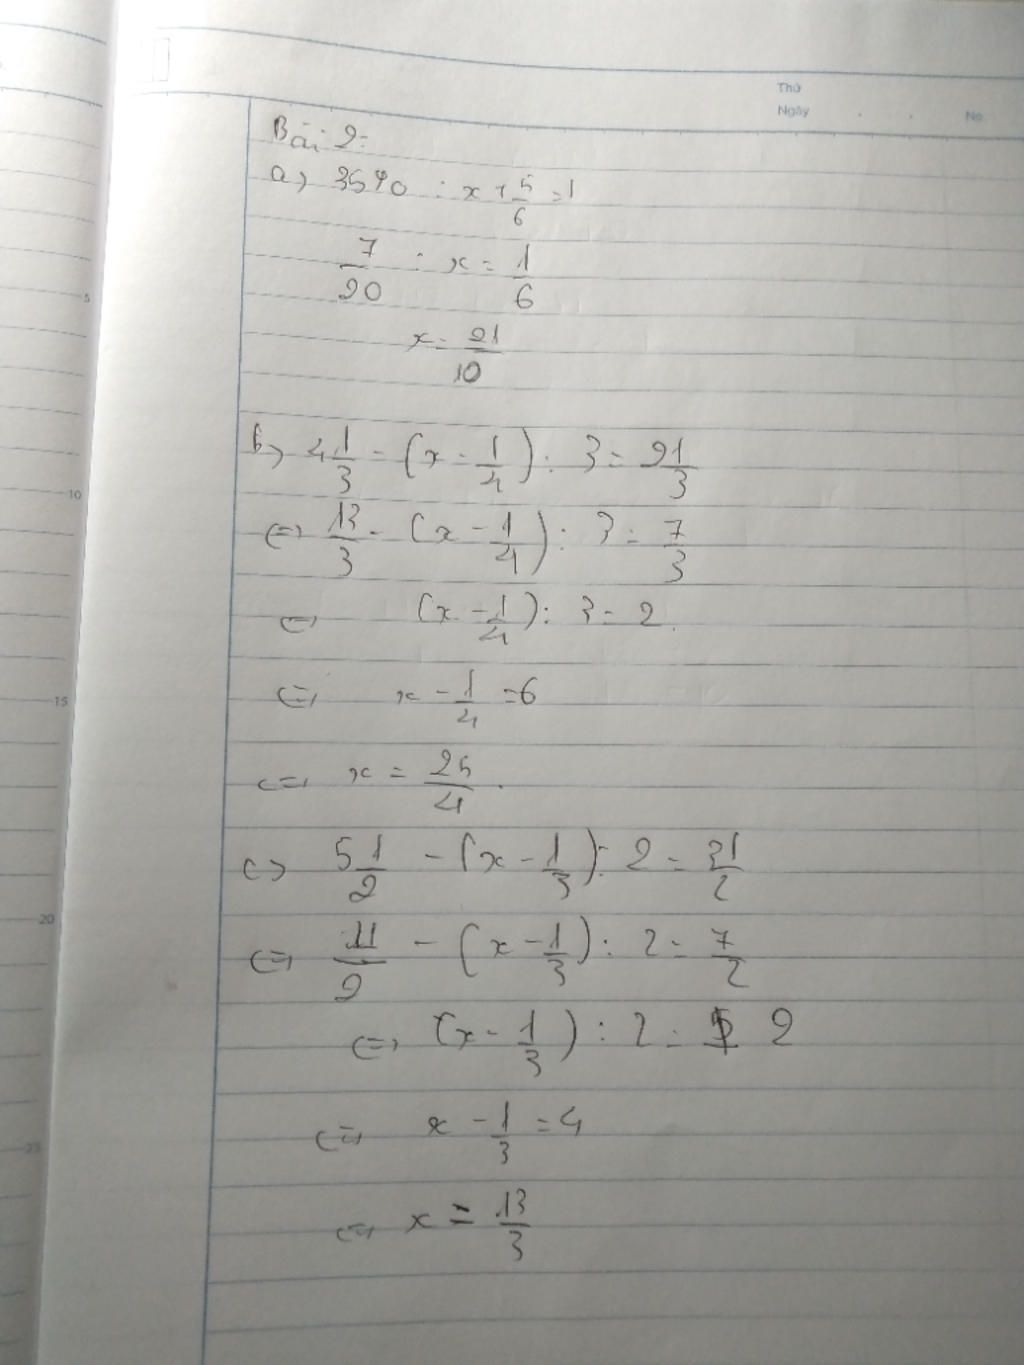 Thứ
Ngày . . No
Bài 2:
a) 3590 : x + 5/6 = 1
7/20 : x = 1/6
x = 21/10
b) 4 1/3 - (x - 1/4) : 3 = 2 1/3
<=> 13/3 - (x - 1/4) : 3 = 7/3
<=> (x - 1/4) : 3 = 2
<=> x - 1/4 = 6
<=> x = 25/4.
c) 5 1/2 - (x - 1/3) : 2 = 3 1/2
<=> 11/2 - (x - 1/3) : 2 = 7/2
<=> (x - 1/3) : 2 = 2
<=> x - 1/3 = 4
<=> x = 13/3
5
10
15
20
25